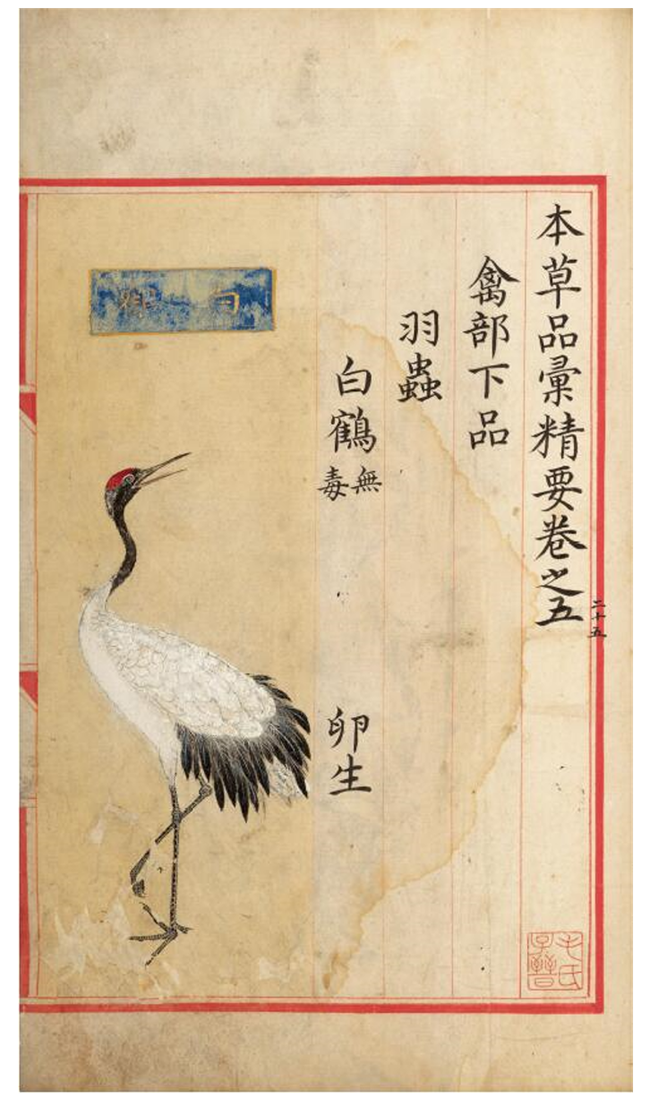 本草品彙精要卷之五
二十五
禽部下品
羽蟲
白鶴 無毒
卵生
白
毛氏子晉